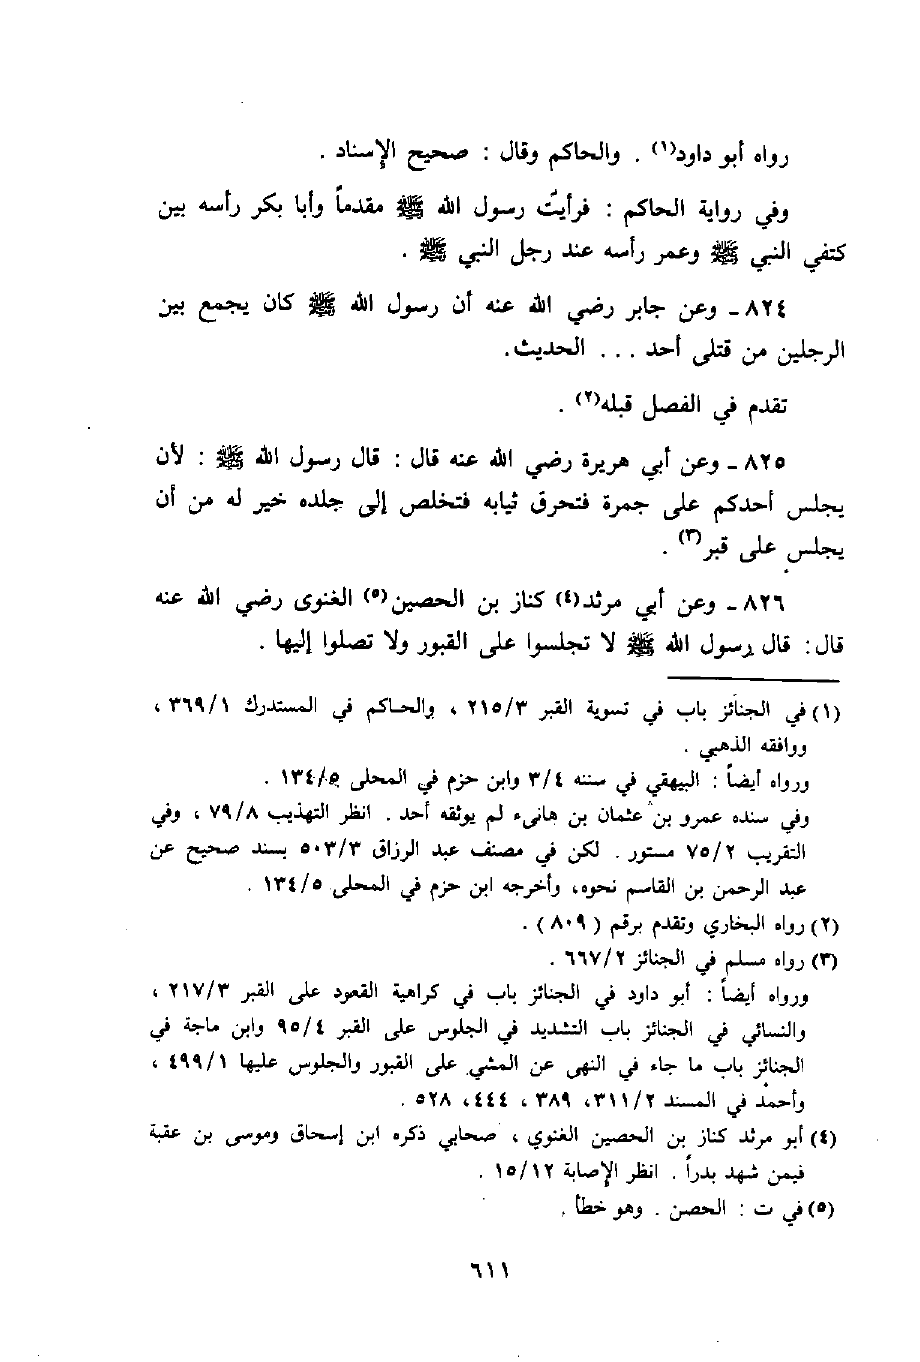 رواه أبو داود(١) . والحاكم وقال : صحيح الإسناد .
وفي رواية الحاكم : فرأيت رسول الله ﷺ مقدماً وأبا بكر رأسه بين
كتفي النبي ﷺ وعمر رأسه عند رجل النبي ﷺ .
٨٢٤ ـ وعن جابر رضي الله عنه أن رسول الله ﷺ كان يجمع بين
الرجلين من قتلى أحد . . . الحديث.
تقدم في الفصل قبله(٢) .
٨٢٥ ـ وعن أبي هريرة رضي الله عنه قال : قال رسول الله ﷺ : لأن
يجلس أحدكم على جمرة فتحرق ثيابه فتخلص إلى جلده خير له من أن
يجلس على قبر(٣) .
٨٢٦ ـ وعن أبي مرثد(٤) كناز بن الحصين(٥) الغنوى رضي الله عنه
قال : قال رسول الله ﷺ لا تجلسوا على القبور ولا تصلوا إليها .
(١) في الجنائز باب في تسوية القبر ٢١٥/٣ ، والحاكم في المستدرك ٣٦٩/١ ،
ووافقه الذهبي .
ورواه أيضاً : البيهقي في سننه ٣/٤ وابن حزم في المحلى ١٣٤/٥ .
وفي سنده عمرو بن عثمان بن هانىء لم يوثقه أحد . انظر التهذيب ٧٩/٨ ، وفي
التقريب ٧٥/٢ مستور . لكن في مصنف عبد الرزاق ٥٠٣/٣ بسند صحيح عن
عبد الرحمن بن القاسم نحوه، وأخرجه ابن حزم في المحلى ١٣٤/٥ .
(٢) رواه البخاري وتقدم برقم ( ٨٠٩ ) .
(٣) رواه مسلم في الجنائز ٦٦٧/٢ .
ورواه أيضاً : أبو داود في الجنائز باب في كراهية القعود على القبر ٢١٧/٣ ،
والنسائي في الجنائز باب التشديد في الجلوس على القبر ٩٥/٤ وابن ماجة في
الجنائز باب ما جاء في النهى عن المشي على القبور والجلوس عليها ٤٩٩/١ ،
وأحمد في المسند ٣١١/٢، ٣٨٩ ، ٤٤٤، ٥٢٨ .
(٤) أبو مرثد كناز بن الحصين الغنوي ، صحابي ذكره ابن إسحاق وموسى بن عقبة
فيمن شهد بدراً . انظر الإصابة ١٥/١٢ .
(٥) في ت : الحصن . وهو خطأ .
٦١١